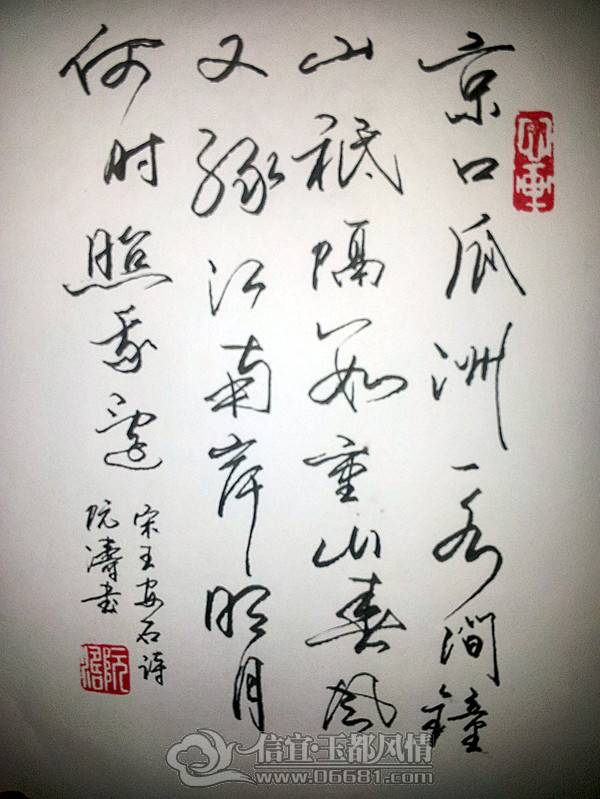 京口瓜洲一水澗鐘
山祗隔數重山春風
又綠江南岸明月
何时照我還
宋王安石詩
阮濤书
信宜·玉都风情
www.06681.com